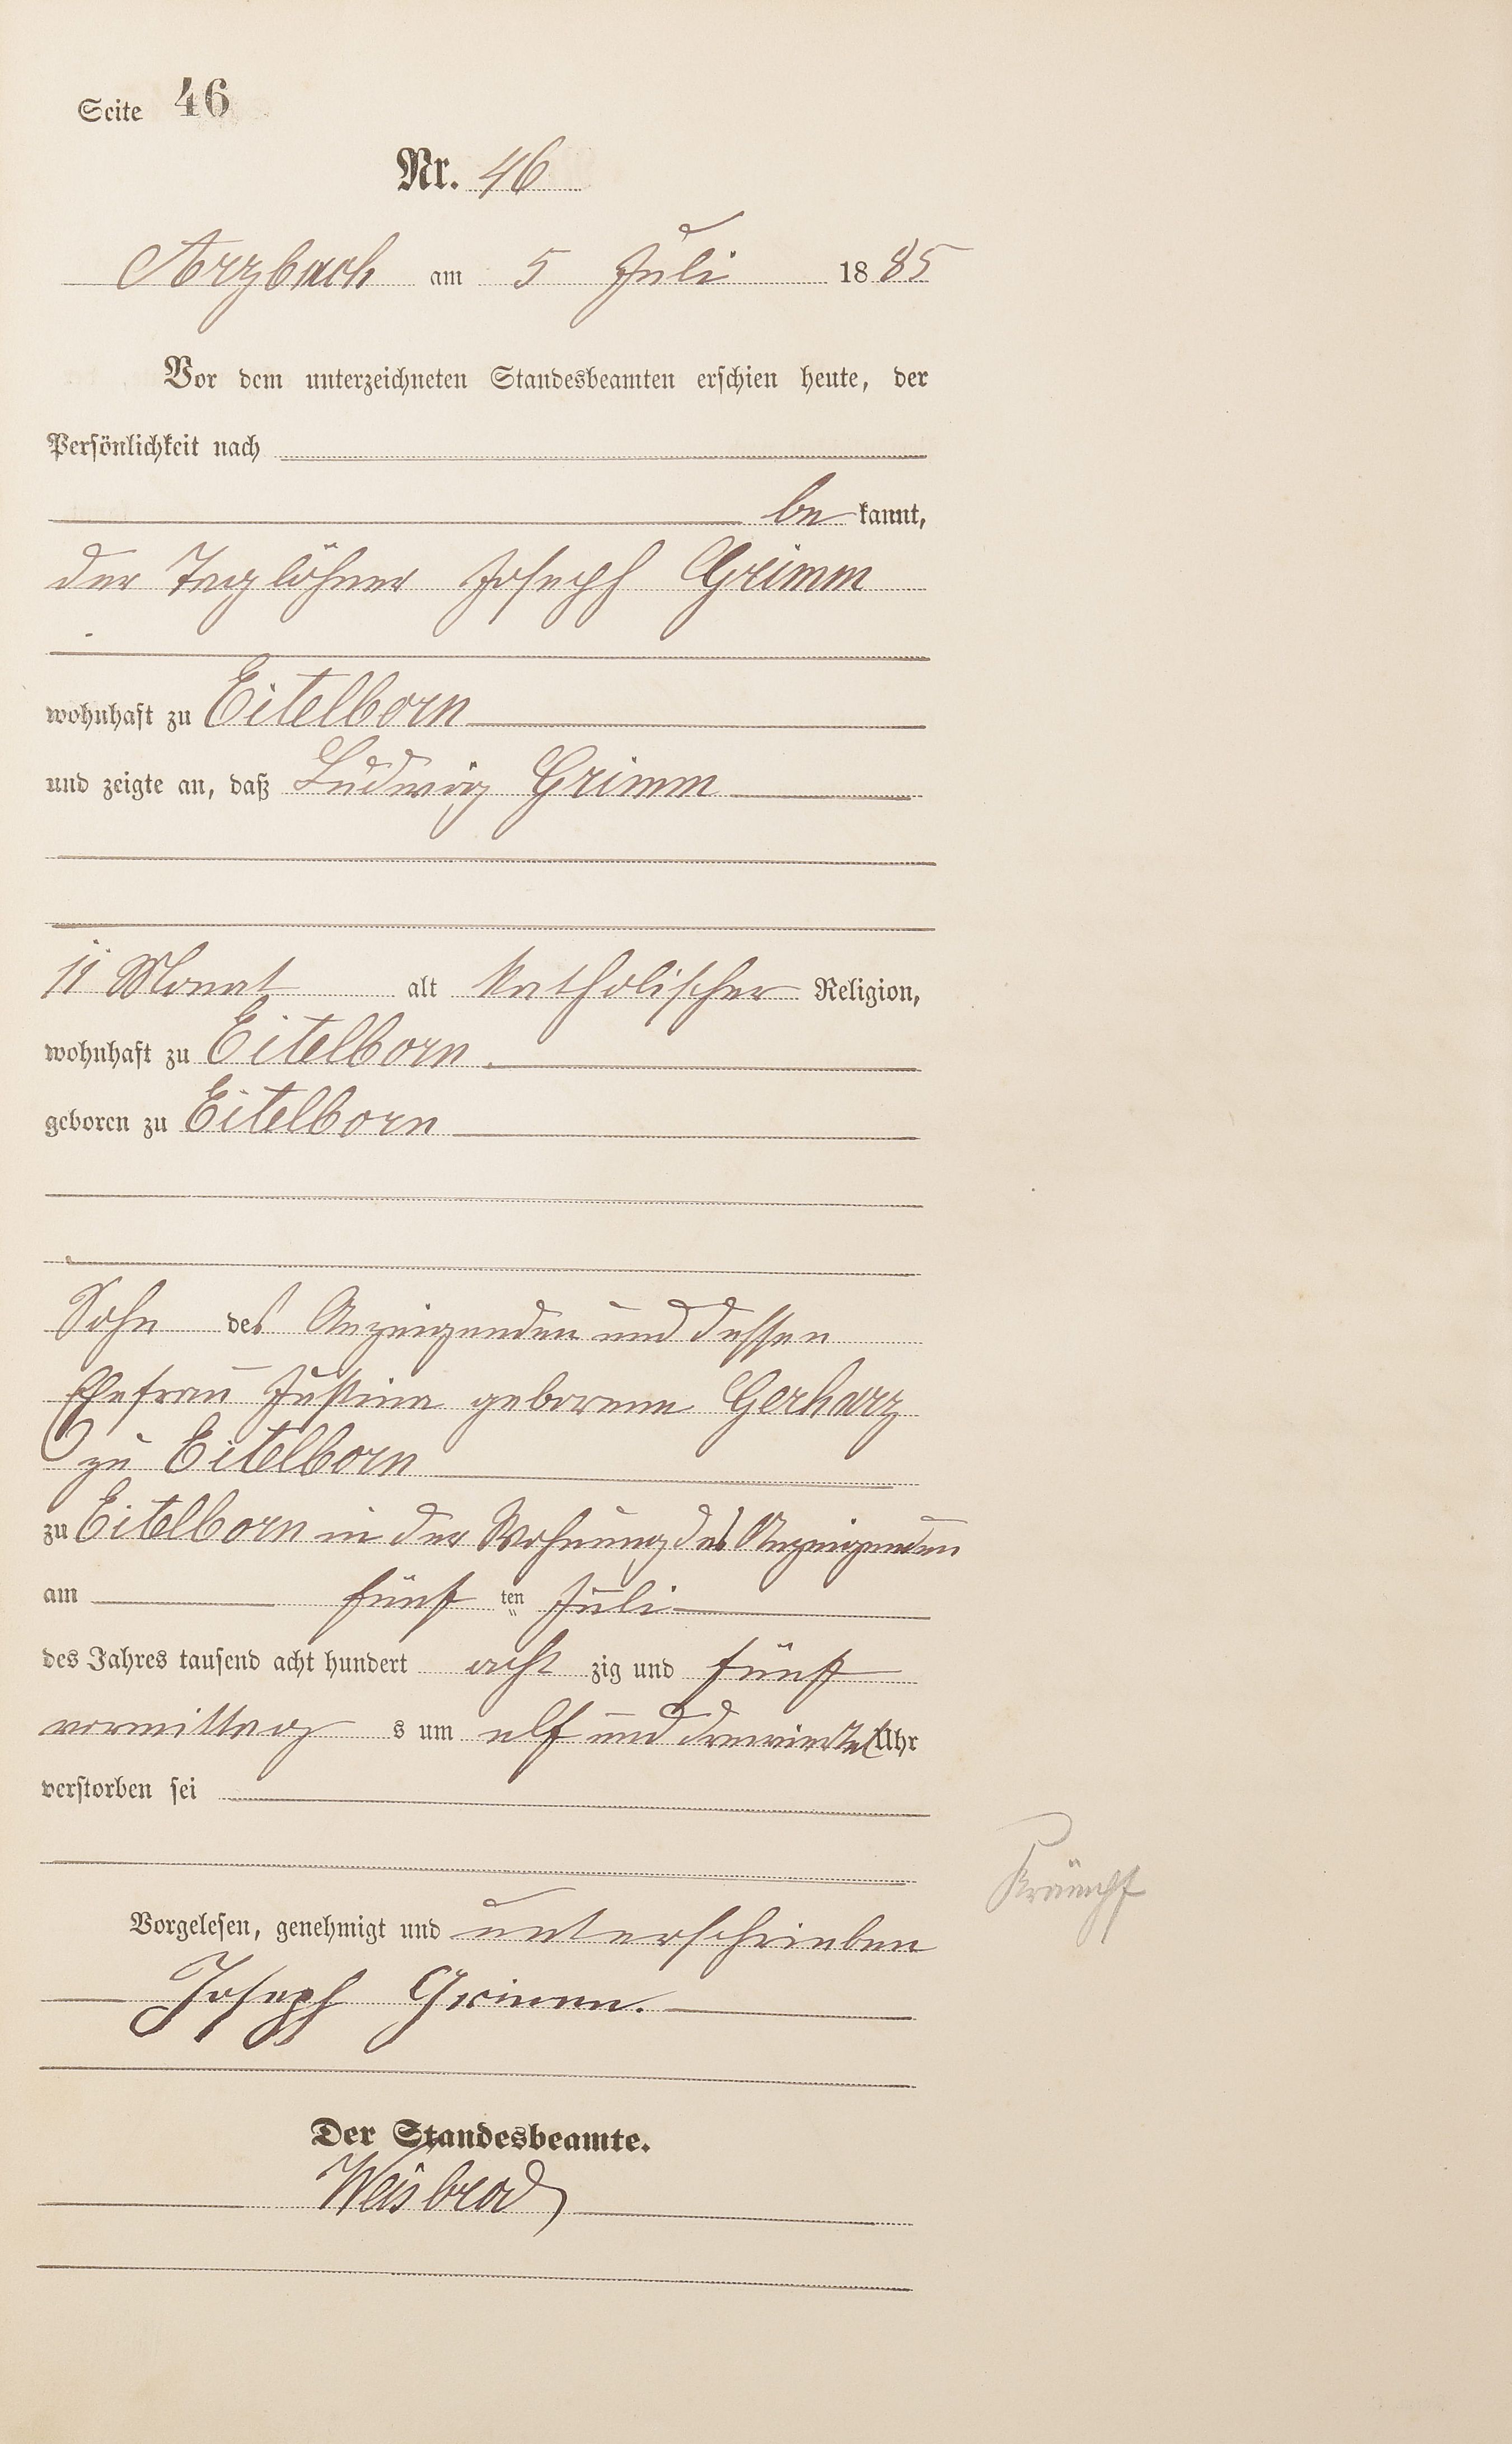 Seite 46
Nr. 46
Arzbach am 5 Juli 1885
Vor dem unterzeichneten Standesbeamten erschien heute, der
Persönlichkeit nach
be kannt,
der Taglöhner Joseph Grimm
wohnhaft zu Eitelborn
und zeigte an, daß Ludwig Grimm
11 Monat alt katholischer Religion,
wohnhaft zu Eitelborn.
geboren zu Eitelborn
Sohn des Anzeigenden und dessen
Ehefrau Justina geborene Gerharz
zu Eitelborn
zu Eitelborn in der Wohnung des Anzeigenden
am fünf ten Juli
des Jahres tausend acht hundert acht zig und fünf
vormittag s um elf und dreiviertel Uhr
verstorben sei
Krämpf
Vorgelesen, genehmigt und unterschrieben
Joseph Grimm.
Der Standesbeamte.
Weisbrod